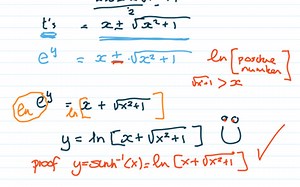 2
t's = x ± √x²+1
e^y = x ± √x²+1
ln [positive number]
√x²+1 > x
ln e^y = ln[x + √x²+1]
y = ln [x + √x²+1]
proof y = sinh⁻¹(x) = ln [x + √x²+1] ✓